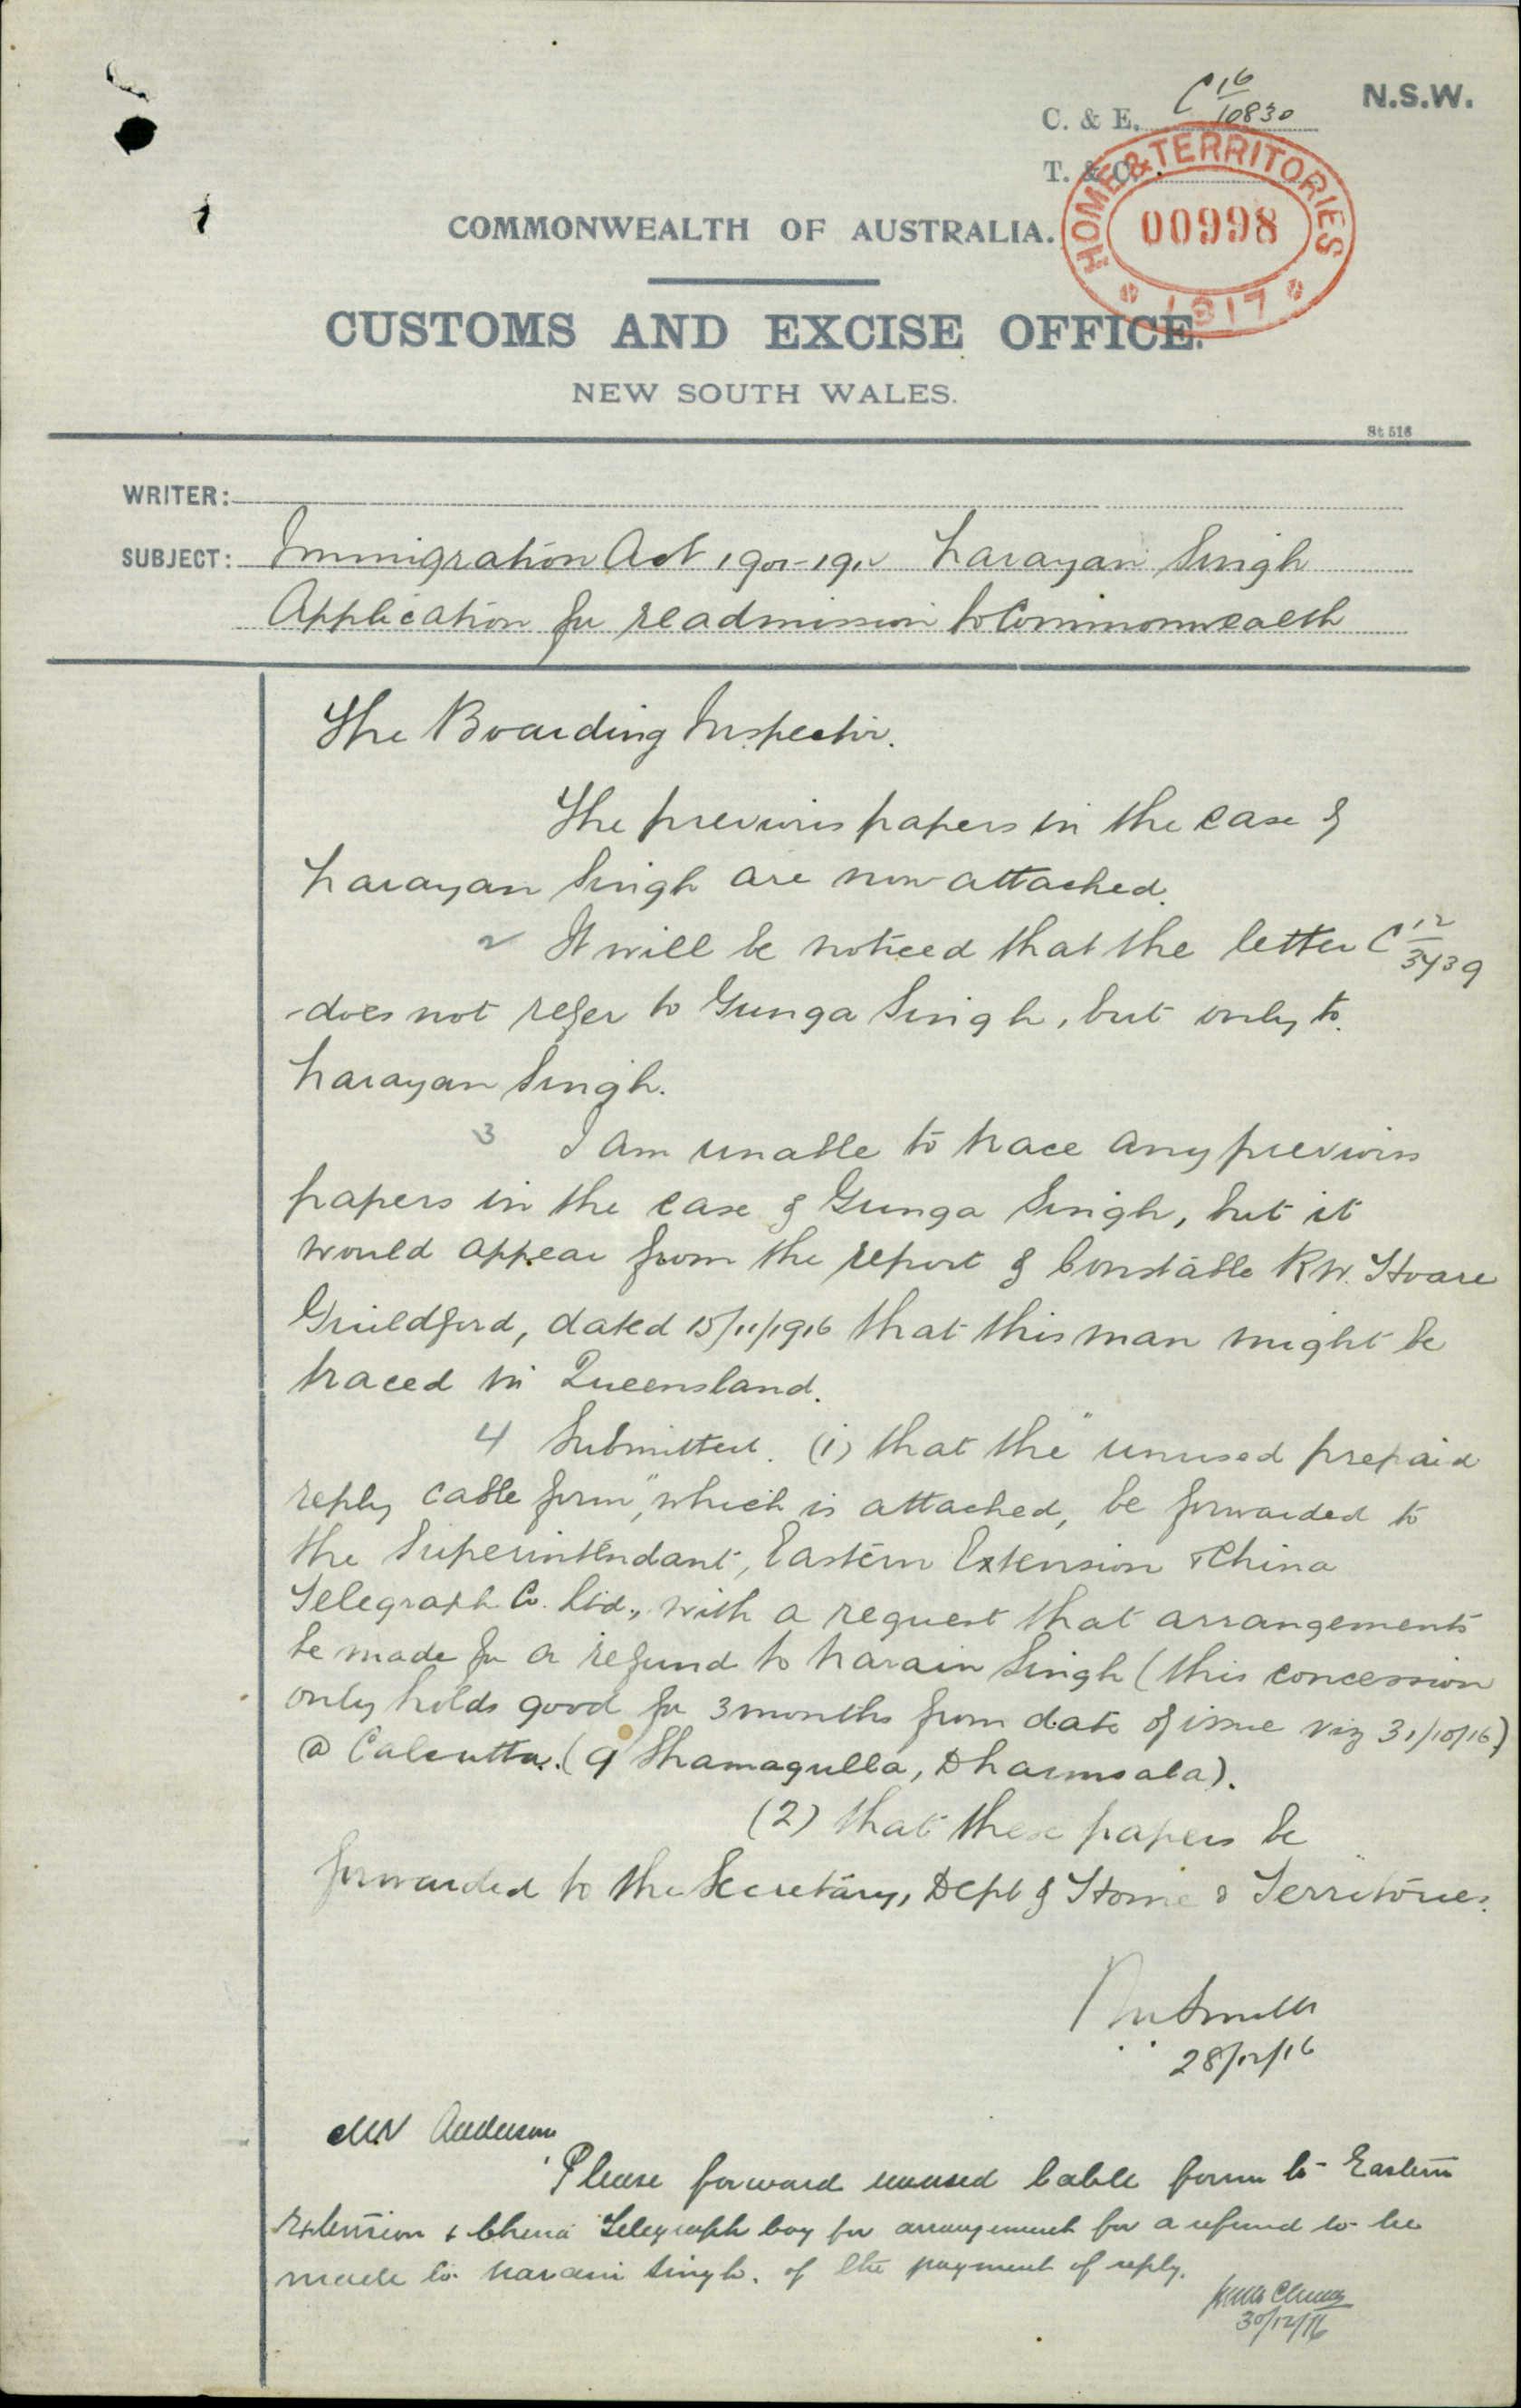 C. & E. C 16/10830
N.S.W.
T. & C.
HOME & TERRITORIES
00998
1917
COMMONWEALTH OF AUSTRALIA.
CUSTOMS AND EXCISE OFFICE.
NEW SOUTH WALES.
St 516
WRITER:
SUBJECT: Immigration Act 1901-1912 Narayan Singh
Application for readmission to Commonwealth
The Boarding Inspector.
The previous papers in the case of
Narayan Singh are now attached.
2 It will be noticed that the letter C 12/3739
does not refer to Gunga Singh, but only to
Narayan Singh.
3 I am unable to trace any previous
papers in the case of Gunga Singh, but it
would appear from the report of Constable R.W. Hoare
Guildford, dated 15/11/1916 that this man might be
traced in Queensland.
4 Submitted. (1) that the "unused prepaid
reply cable form", which is attached, be forwarded to
the Superintendant, Eastern Extension & China
Telegraph Co. Ltd., with a request that arrangements
be made for a refund to Narain Singh (this concession
only holds good for 3 months from date of issue viz 31/10/16)
@ Calcutta. (9 Shamagulla, Dharmsala).
(2) that these papers be
forwarded to the Secretary, Dept of Home & Territories.
Smith
28/12/16
Mr Anderson
Please forward unused cable form to Eastern
Extension & China Telegraph Coy for arrangement for a refund to be
made to Narain Singh. of the payment of reply.
30/12/16